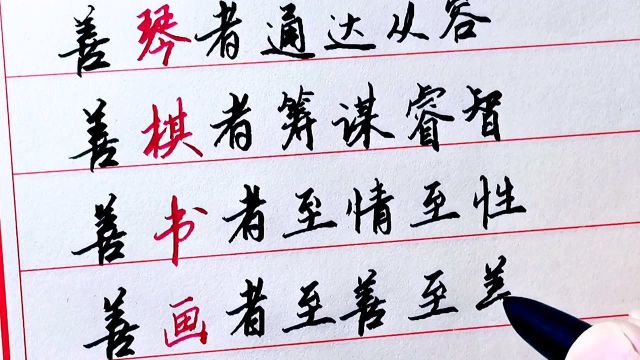 善琴者通达从容
善棋者筹谋睿智
善书者至情至性
善画者至善至美